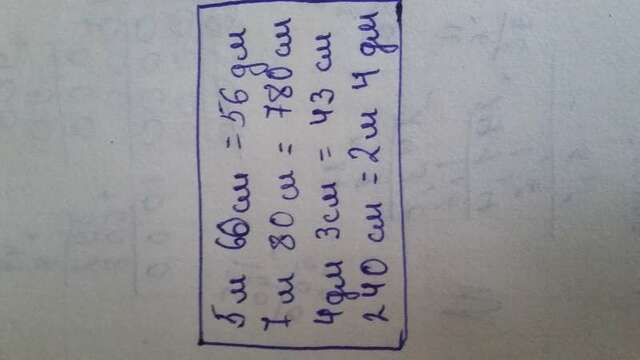 5 м 60 см = 56 дм
7 м 80 см = 780 см
4 дм 3 см = 43 см
240 см = 2 м 4 дм